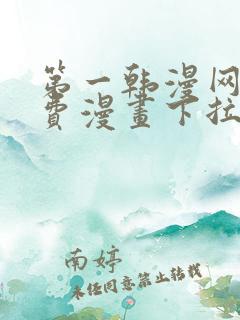 第一韩漫网
费漫畫下拉
南婷
未经同意禁止转载